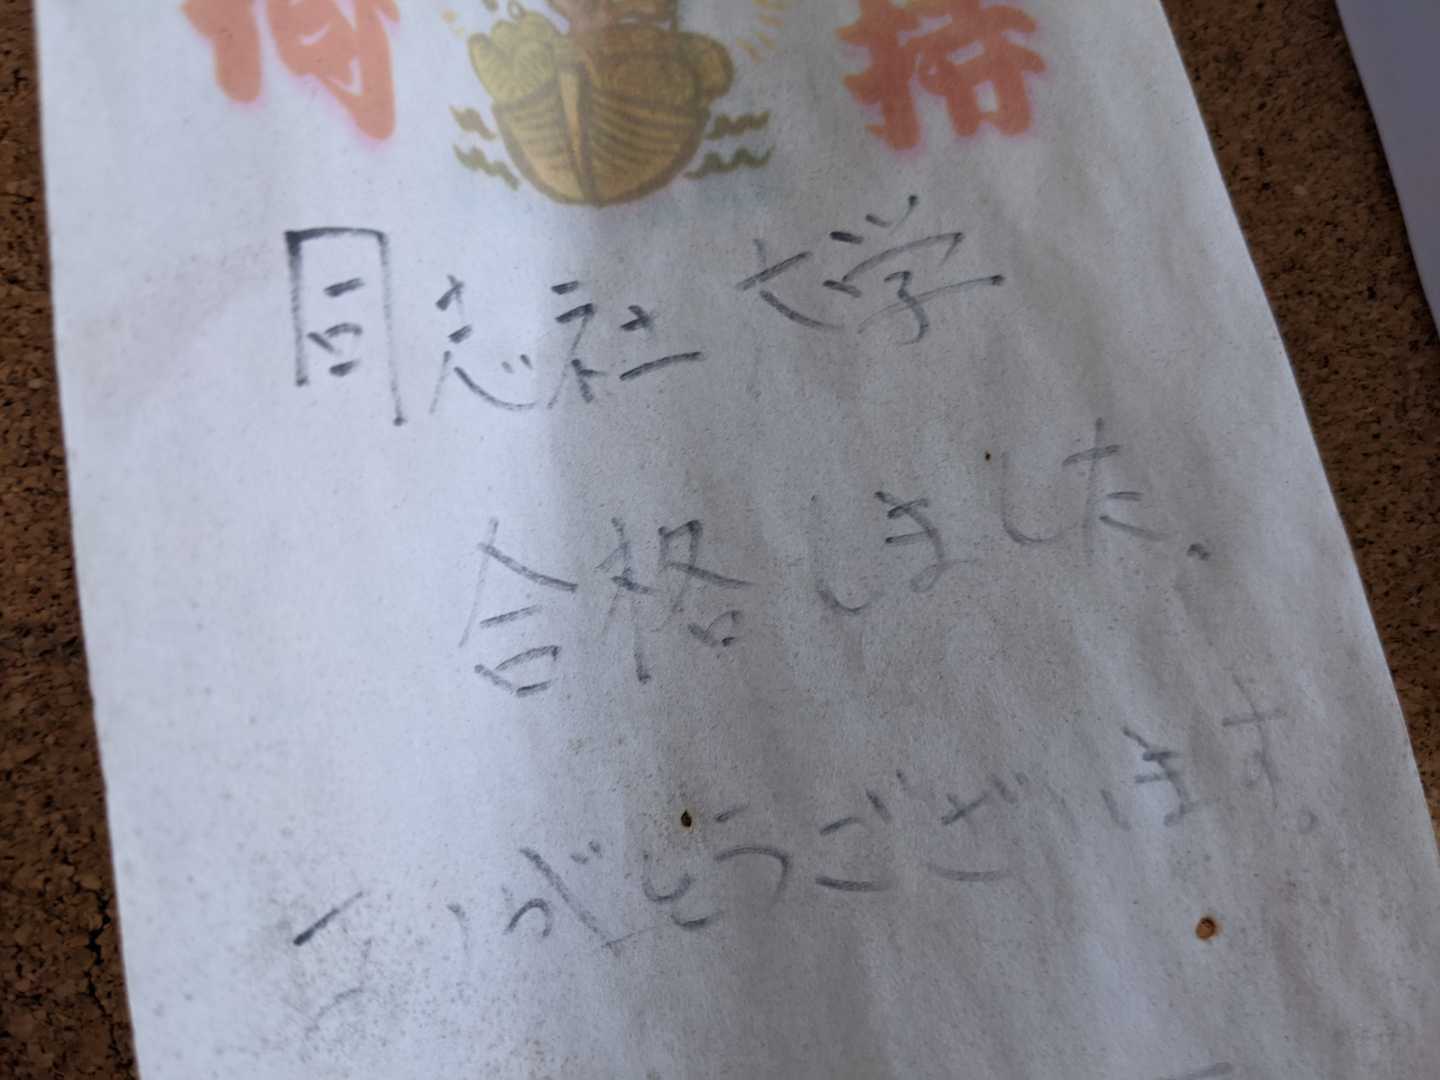 同志社大学
合格しました.
ありがとうございます。